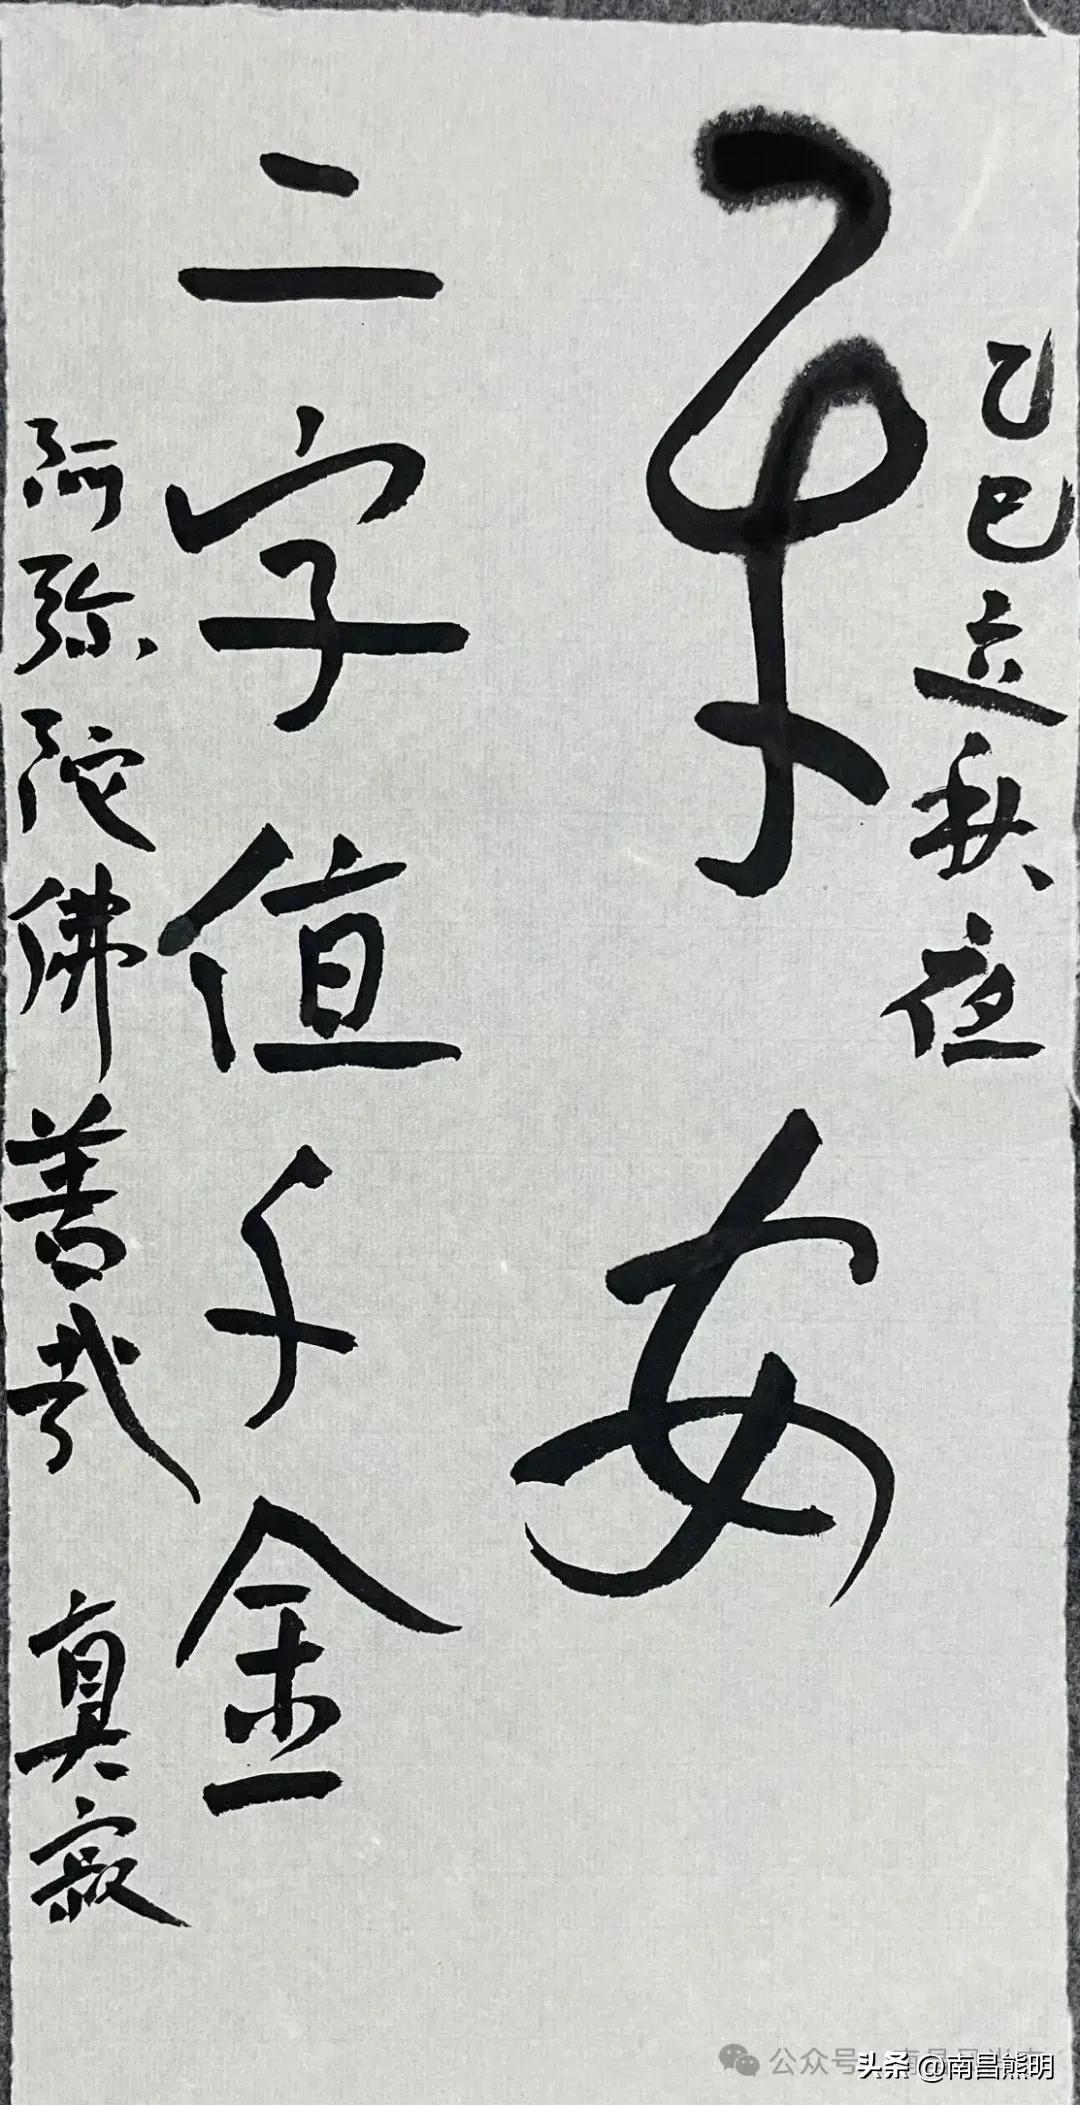 乙巳立秋夜
平安
二字值千金
阿弥陀佛善哉 真寂
公众号
头条 @南昌熊明